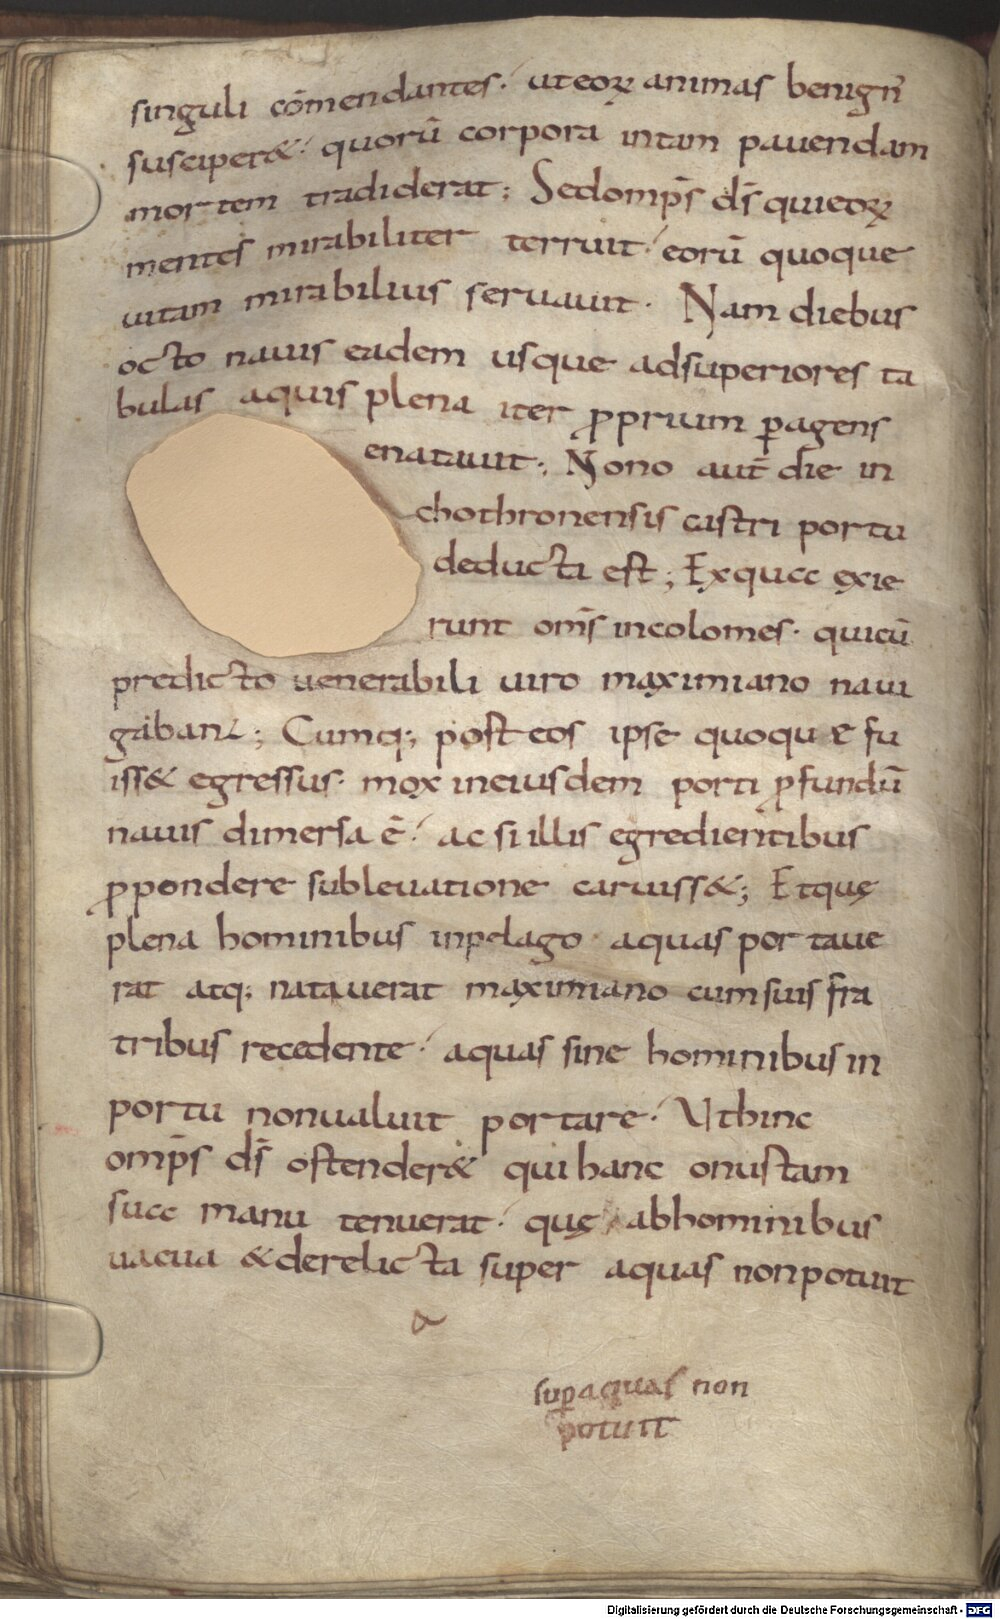 singuli cōmendantes· ut eoꝝ animas benign̄
susciper&· quorū corpora in tam pauendam
mortem tradiderat; Sed omp̄s d̄s qui eoꝝ
mentes mirabiliter terruit· eorū quoque
uitam mirabilius seruauit· Nam diebus
octo nauis eadem usque ad superiores ta
bulas aquis plena iter ꝓprium ꝑagens
enatauit; Nono aut̄ die in
chothronensis castri portu
deducta est; Ex qua exie
runt om̄s incolomes· qui cū
predicto uenerabili uiro maximiano naui
gabant; Cumq; post eos ipse quoque fu
iss& egressus· mox in eiusdem porti ꝓfundū
nauis dimersa ē· ac si illis egredientibus
ꝓ pondere subleuatione caruiss&; Et quę
plena hominibus in pelago aquas portaue
rat atq; natauerat maximiano cum suis fra
tribus recedente· aquas sine hominibus in
portu non ualuit portare· Ut hinc
omp̄s d̄s ostender& qui hanc onustam
sua manu tenuerat· quę ab hominibus
uacua & derelicta super aquas non potuit
a
suꝑ aquas non
potuit
Digitalisierung gefördert durch die Deutsche Forschungsgemeinschaft - DFG